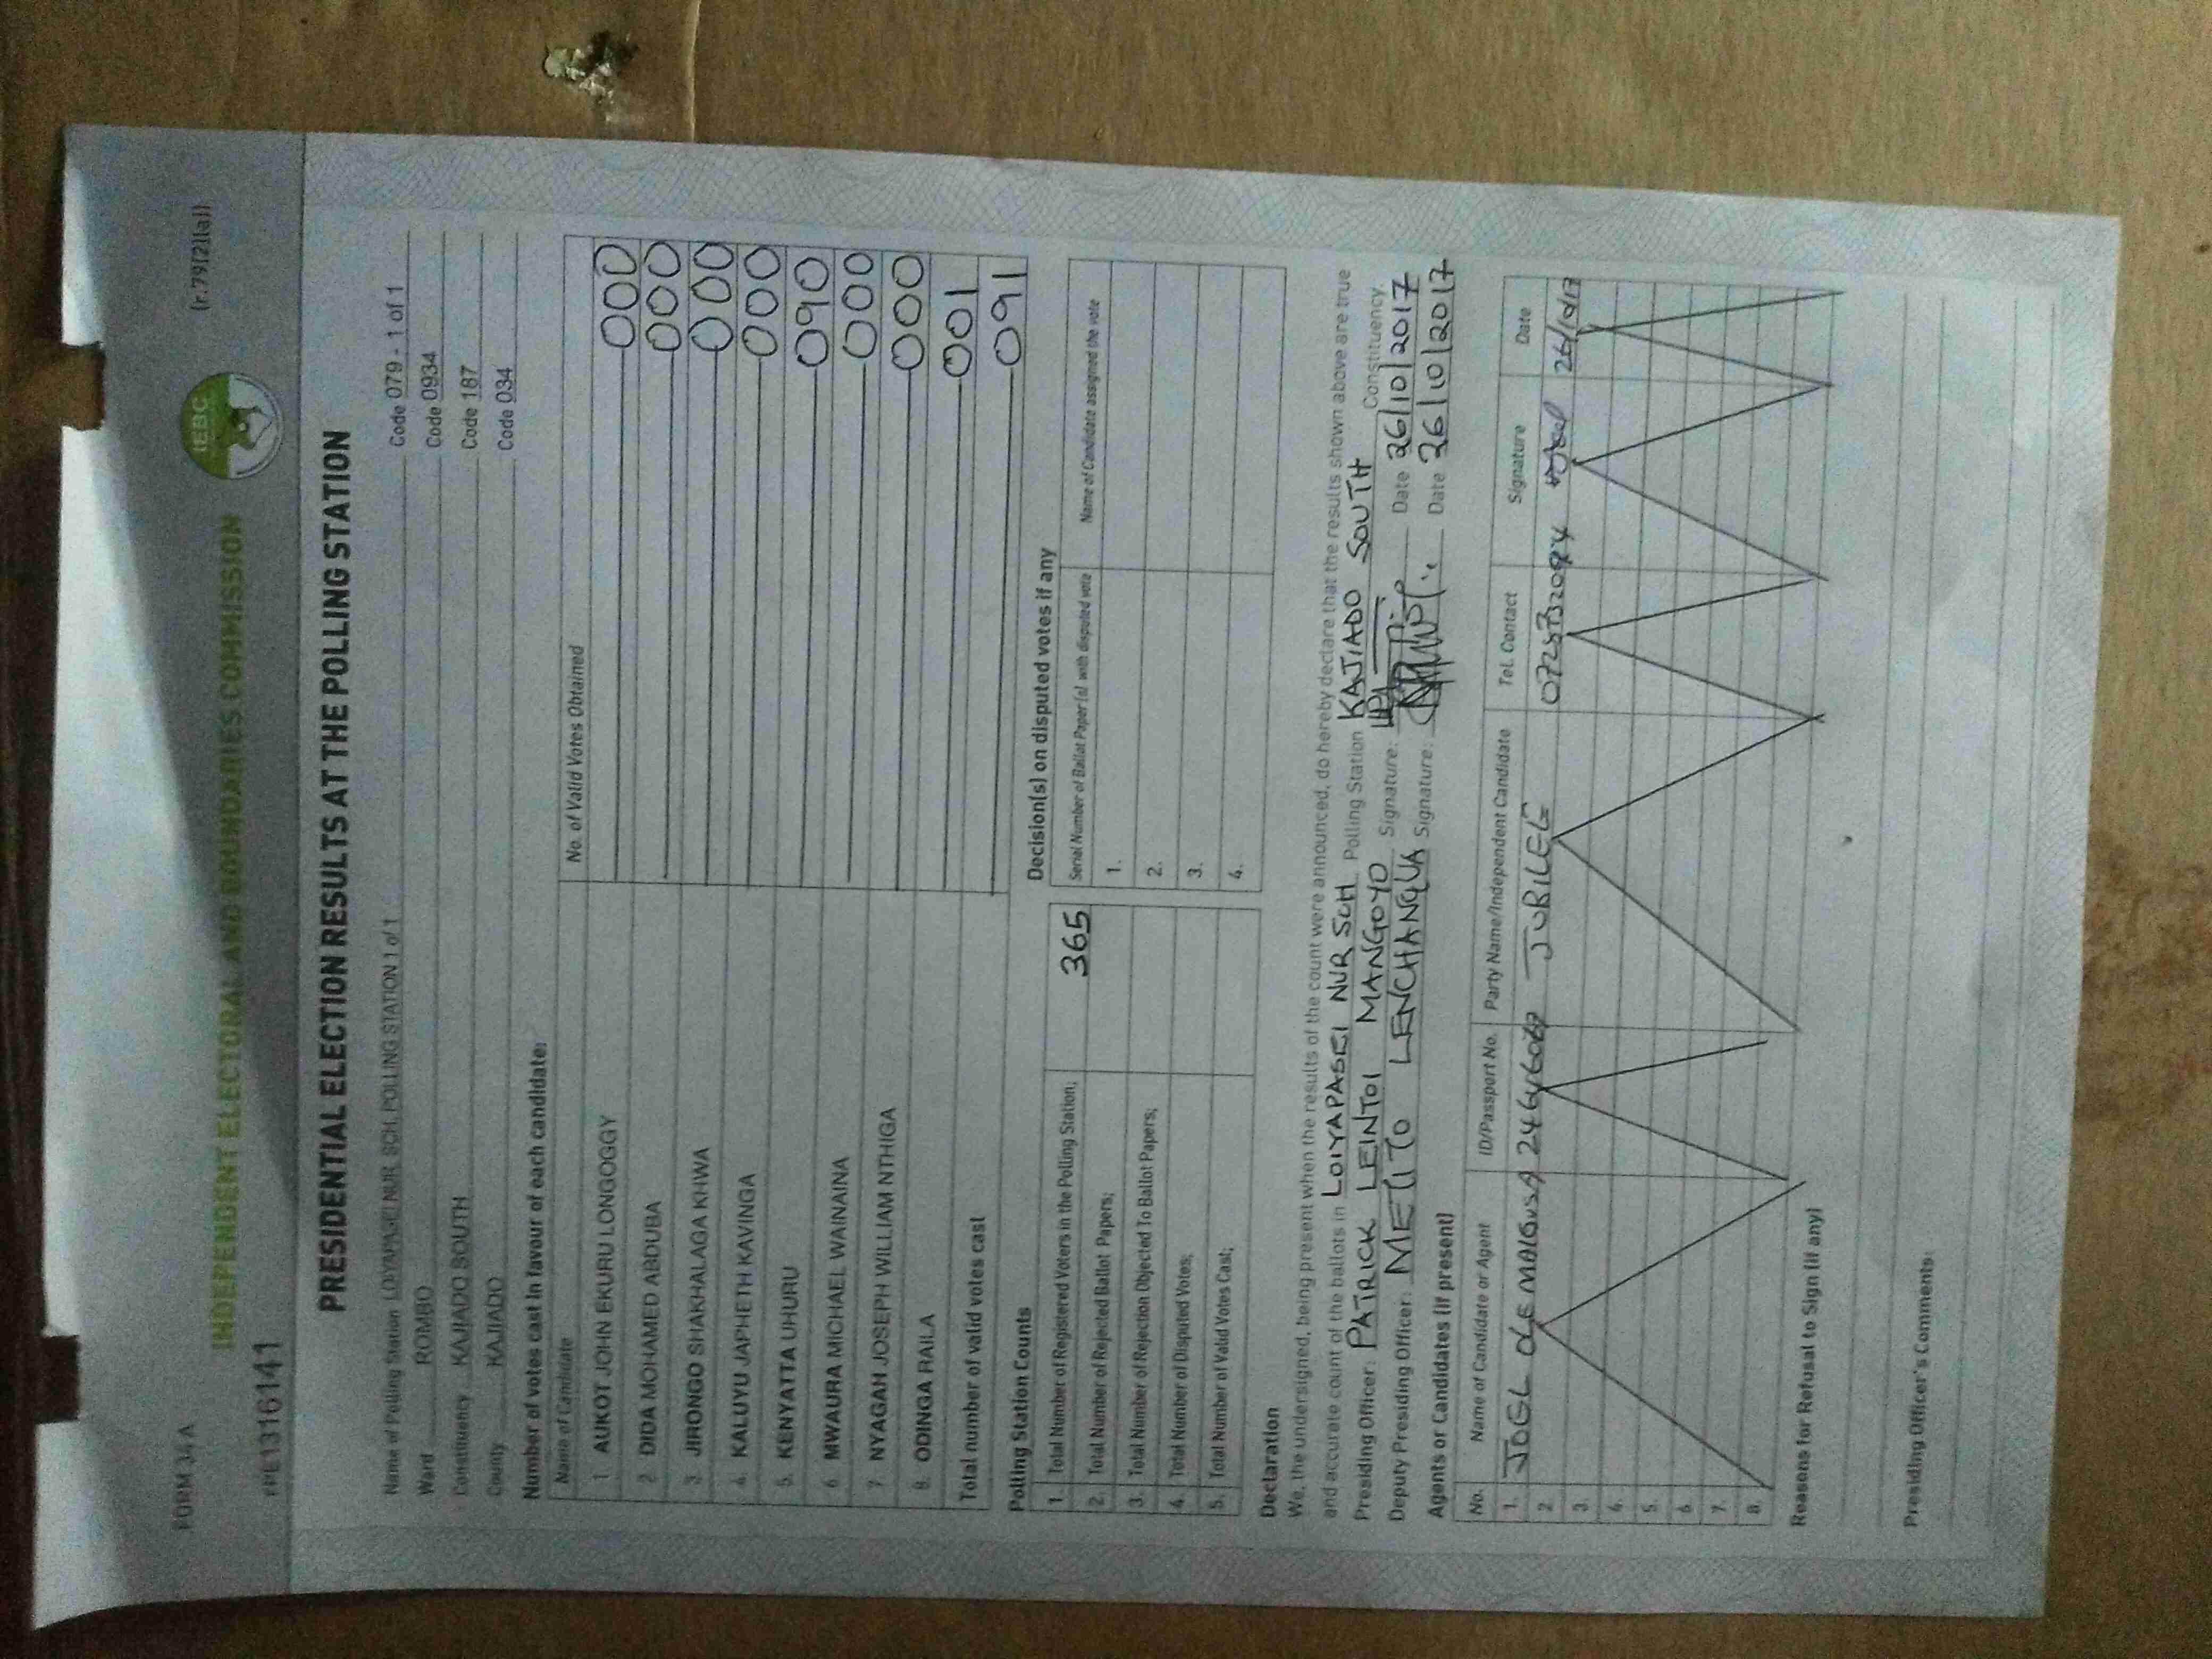 FORM 34 A
(r.79(2)(a))
IEBC
INDEPENDENT ELECTORAL AND BOUNDARIES COMMISSION
PRESIDENTIAL ELECTION RESULTS AT THE POLLING STATION
Name of Polling Station LOIYAPASEI NUR SCH. POLLING STATION 1 of 1 Code 079 - 1 of 1
Ward ROMBO Code 0934
Constituency KAJIADO SOUTH Code 187
County KAJIADO Code 034
Number of votes cast in favour of each candidate:
Name of Candidate No. of Valid Votes Obtained
1 AUKOT JOHN EKURU LONGOGGY 000
2 DIDA MOHAMED ABDUBA 000
3. JIRONGO SHAKHALAGA KHWA 000
4. KALUYU JAPHETH KAVINGA 000
5. KENYATTA UHURU 090
6 MWAURA MICHAEL WAINAINA 000
7. NYAGAH JOSEPH WILLIAM NTHIGA 000
8. ODINGA RAILA 001
Total number of valid votes cast 091
Polling Station Counts
1. Total Number of Registered Voters in the Polling Station; 365
2. Total Number of Rejected Ballot Papers;
3. Total Number of Rejection Objected To Ballot Papers;
4. Total Number of Disputed Votes;
5. Total Number of Valid Votes Cast;
Decision(s) on disputed votes if any
Serial Number of Ballot Paper (s) with disputed vote Name of Candidate assigned the vote
1.
2.
3.
4.
Declaration
We, the undersigned, being present when the results of the count were announced, do hereby declare that the results shown above are true
and accurate count of the ballots in LOIYAPASEI NUR SCH Polling Station KAJIADO SOUTH Constituency.
Presiding Officer: PATRICK LEINTOI MANGOYO Signature: Date 26/10/2017
Deputy Presiding Officer: LENCHANQUA Signature: Date 26/10/2017
Agents or Candidates (if present)
No. Name of Candidate or Agent ID/Passport No. Party Name/Independent Candidate Tel. Contact Signature Date
1. JUBILEE
2
3.
4.
5.
6
7.
8.
Reasons for Refusal to Sign (if any)
Presiding Officer's Comments: